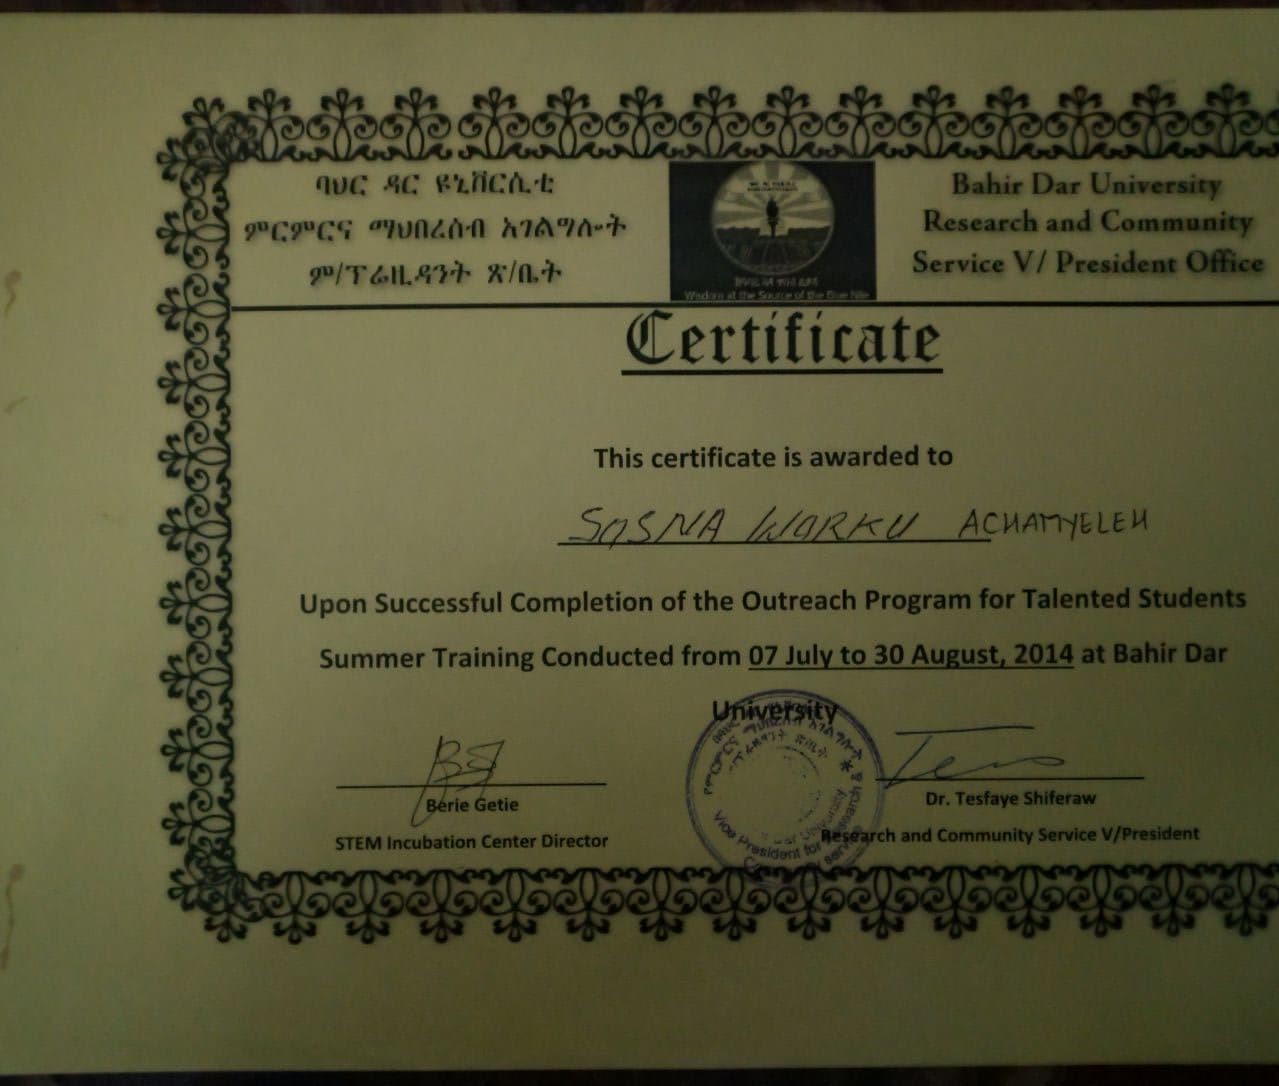 ባህር ዳር ዩኒቨርሲቲ
ምርምርና ማህበረሰብ አገልግሎት
ም/ፕሬዚዳንት ጽ/ቤት
Wisdom at the Source of the Blue Nile
Bahir Dar University
Research and Community
Service V/ President Office
Certificate
This certificate is awarded to
SOSNA WORKU ACHAMYELEH
Upon Successful Completion of the Outreach Program for Talented Students
Summer Training Conducted from 07 July to 30 August, 2014 at Bahir Dar
University
Berie Getie
STEM Incubation Center Director
Dr. Tesfaye Shiferaw
Research and Community Service V/President
Vice President for Research &